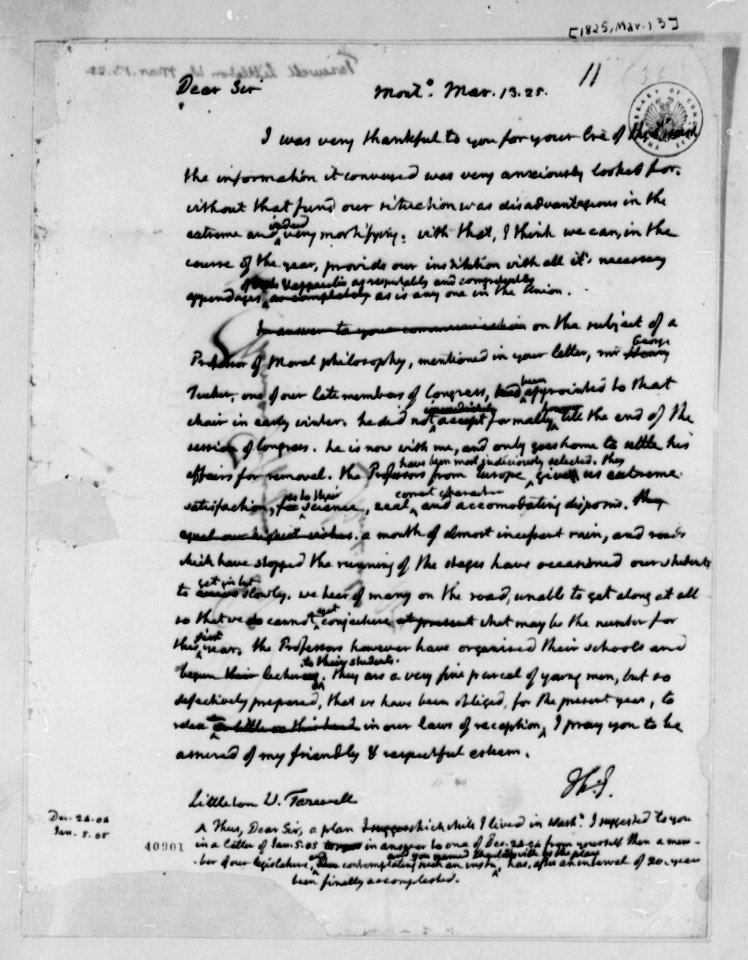 [1825, Mar. 13]
Dear Sir Mont.o Mar. 13. 25. 11
I was very thankful to you for your lre of the
the information it conveyed was very anxiously looked for.
without that fund our situation was disadvantageous in the
extreme and indeed very mortifying: with that, I think we can, in the
course of the year, provide our institution with all it's necessary
books & apparatus as respectably and competently
appendages, as completely as is any one in the Union.
In answer to your communication on the subject of a
Professor of Moral philosophy, mentioned in your letter, mr Henry George
Tucker, one of our late members of Congress, had been appointed to that
chair in early winter. he did not immediately accept formally till the end of the
session of Congress. he is now with me, and only goes home to settle his
affairs for removal. the Professors from Europe have been most judiciously selected. they give us extreme
satisfaction, as to their science, zeal, correct character and accomodating disposns. they
equal our highest wishes. a month of almost incessant rain, and roads
which have stopped the running of the stages have occasioned our students
to arrive get in but slowly. we hear of many on the road, unable to get along at all
so that we do cannot yet conjecture at present what may be the number for
this first year. the Professors however have organised their schools and
begun their lectures to their students. they are a very fine parcel of young men, but so
defectively prepared, that we have been obliged, for the present year, to
relax in our laws of reception. I pray you to be
assured of my friendly & respectful esteem.
Th: J.
Littleton W. Tazewell
Dec. 24. 04
Jan. 5. 05
A Thus, Dear Sir, a plan which while I lived in Washn. I suggested to you
in a letter of Jan. 5. 05 in answer to one of Dec. 24. 04 from yourself then a mem-
ber of our legislature, then contemplating such an instn, has, after an interval of 20. years
been finally accomplished.
40901